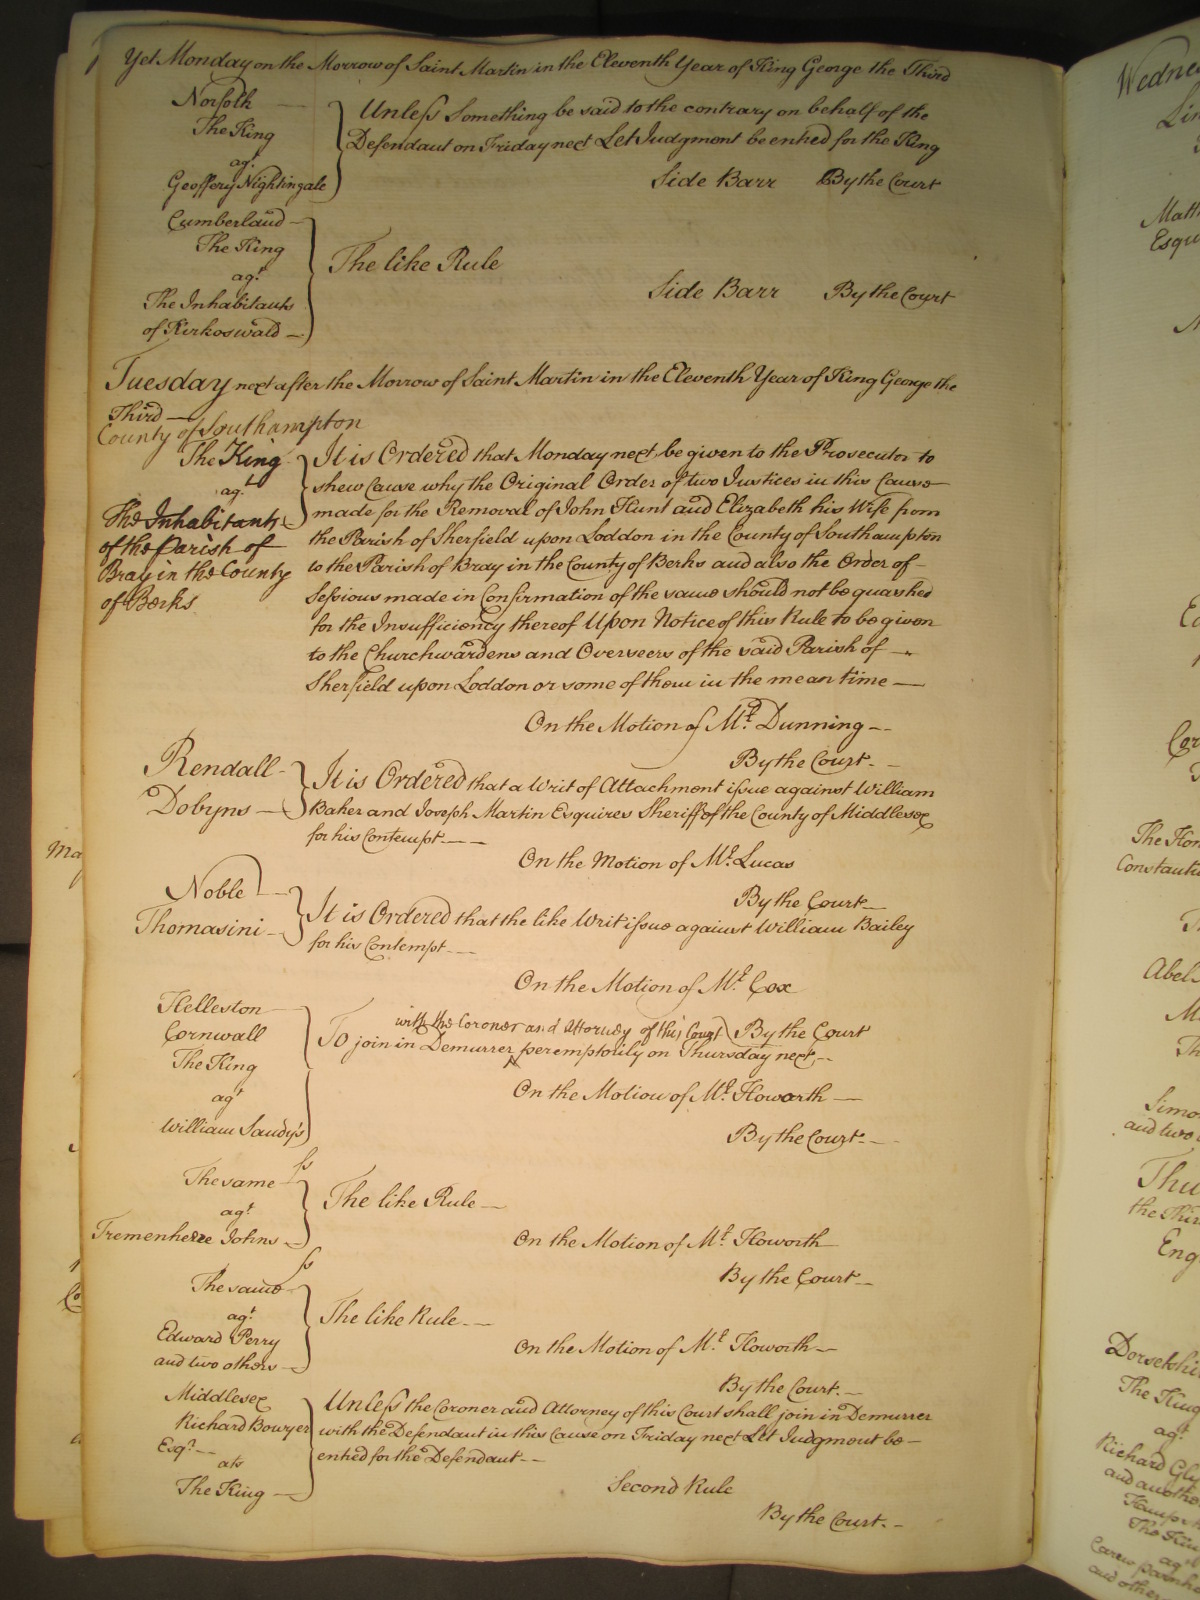 Yet Monday on the Morrow of Saint Martin in the Eleventh Year of King George the Third
Norfolk
The King
agt
Geoffery Nightingale
Unless Something be said to the contrary on behalf of the
Defendant on Friday next Let Judgment be entred for the King
Side Barr By the Court
Cumberland
The King
agt
The Inhabitants
of Kirkoswald
The like Rule
Side Barr By the Court
Tuesday next after the Morrow of Saint Martin in the Eleventh Year of King George the
Third
County of Southampton
The King
agt
The Inhabitants
of the Parish of
Bray in the County
of Berks
It is Ordered that Monday next be given to the Prosecutor to
shew Cause why the Original Order of two Justices in this Cause
made for the Removal of John Hunt and Elizabeth his Wife from
the Parish of Sherfield upon Loddon in the County of Southampton
to the Parish of Bray in the County of Berks and also the Order of
Sessions made in Confirmation of the same should not be quashed
for the Insufficiency thereof Upon Notice of this Rule to be given
to the Churchwardens and Overseers of the said Parish of
Sherfield upon Loddon or some of them in the mean time
On the Motion of Mr. Dunning
By the Court
Rendall
Dobyns
It is Ordered that a Writ of Attachment issue against William
Baker and Joseph Martin Esquires Sheriff of the County of Middlesex
for his Contempt
On the Motion of Mr. Lucas
By the Court
Noble
Thomasini
It is Ordered that the like Writ issue against William Bailey
for his Contempt
On the Motion of Mr. Cox
By the Court
Helleston
Cornwall
The King
agt
William Sandys
with the Coroner and Attorney of this Court
To join in Demurrer peremptorily on Thursday next
On the Motion of Mr. Howorth
By the Court
The same
agt
Tremenheere Johns
ss
The like Rule
On the Motion of Mr. Howorth
By the Court
The same
agt
Edward Perry
and two others
ss
The like Rule
On the Motion of Mr. Howorth
By the Court
Middlesex
Richard Bowyer
Esqr.
ats
The King
Unless the Coroner and Attorney of this Court shall join in Demurrer
with the Defendant in this Cause on Friday next Let Judgment be
entred for the Defendant
Second Rule
By the Court